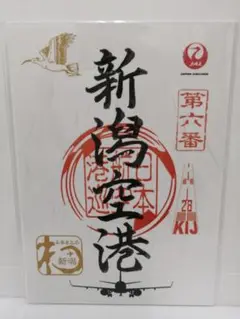 JAPAN AIRLINES
第六番
新潟空港
日本
港巡
28
KIJ
新潟